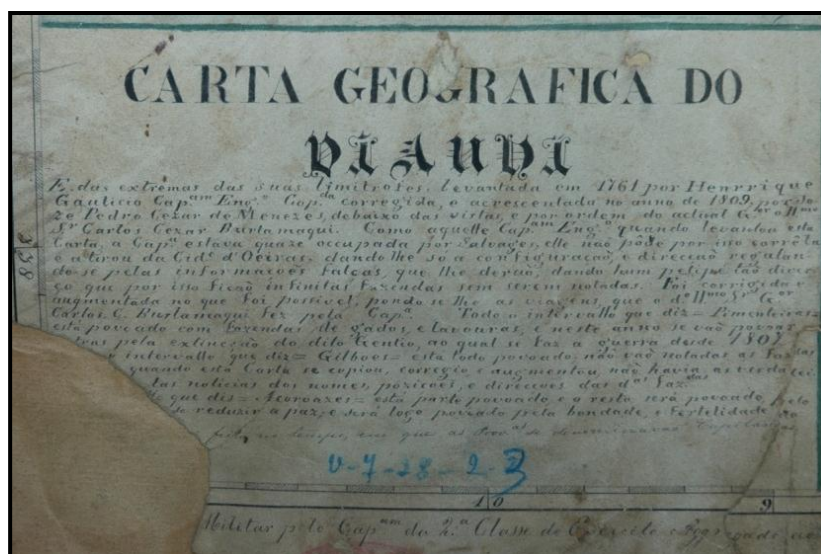 CARTA GEOGRAFICA DO
PIAUHI
E, das extremas das suas limitrofes, levantada em 1761 por Henrrique
Gaulicio Cap.am Eng.o Cap.da corregida, e acrescentada no anno de 1809, por Jo
ze Pedro Cezar de Menezes, debaixo das vistas, e por ordem do actual G.or o Illmo
Sr Carlos Cezar Burlamaqui. Como aquelle Cap.am Eng.o quando levantou esta
Carta, a Cap.a estava quaze occupada por Salvages, elle não pôde por isso corrêla
e a tirou da Cid.e d'Oeiras, dando lhe só a configuração, e direcção regulan
do-se pelas informações falças, que lhe derão, dando hum petipé tão diver
ço que por isso ficão infinitas fazendas sem serem notadas. Foi corregida e
augmentada no que foi possivel, pondo se lhe as viagens, que o d.o Illmo Sr G.or
Carlos C. Burlamaqui fez pela Cap.a Todo o intervallo que diz = Pimenteiras
está povoado com fazendas de gados, e lavouras, e neste anno se vão povoar
outras pela extincção do dito Gentio, ao qual se faz a guerra desde 1807
intervallo que diz = Gilboes = está todo povoado, não vão notadas as faz.das
quando esta Carta se copiou, corregio e augmentou, não havia as verda cei
tas noticias dos nomes, pozições, e direcções das d.as Faz.das
que diz = Acoroazes = está parte povoado, e o resto será povoado pelo
se reduzir a paz, e será logo povoado pela bondade, e Fertelidade do
feita no tempo, em que as Prov.as se denominavão Capitanias
V-7-28-2-3
38
10
9
Militar pelo Cap.am da 2.a Classe do Exercito